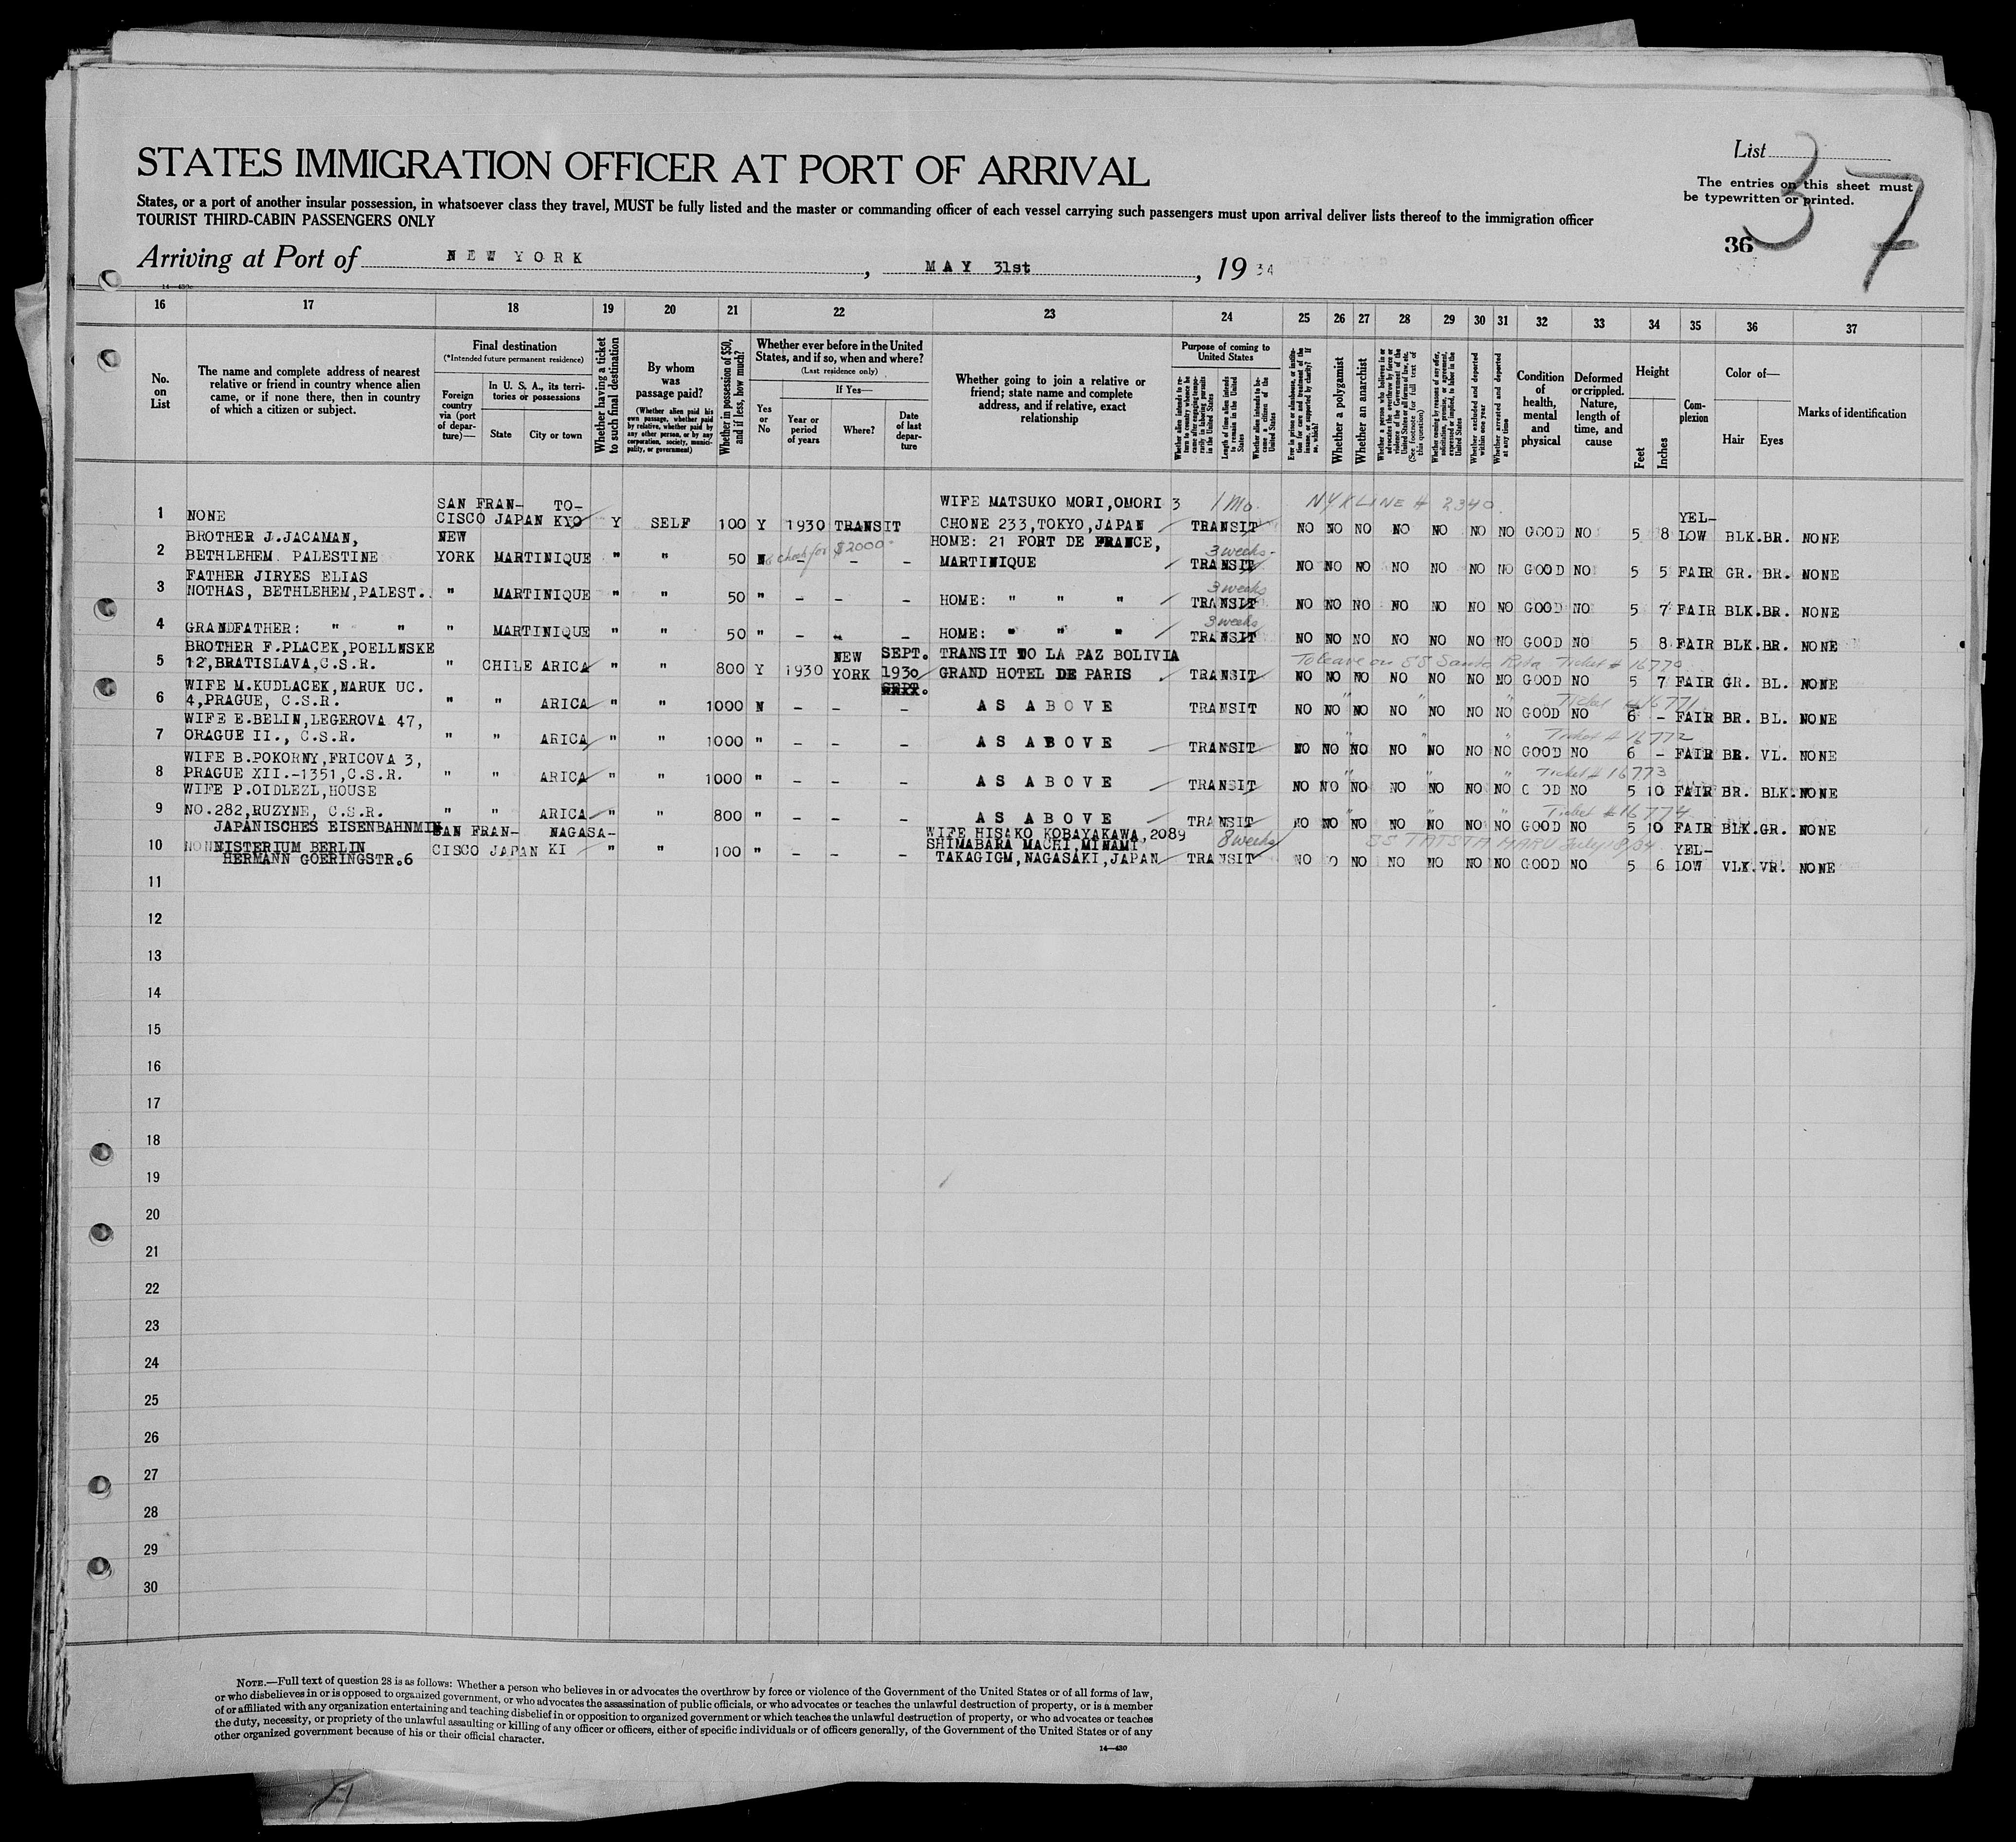 STATES IMMIGRATION OFFICER AT PORT OF ARRIVAL
List 37
The entries on this sheet must
be typewritten or printed.
States, or a port of another insular possession, in whatsoever class they travel, MUST be fully listed and the master or commanding officer of each vessel carrying such passengers must upon arrival deliver lists thereof to the immigration officer
TOURIST THIRD-CABIN PASSENGERS ONLY
36
Arriving at Port of NEW YORK, MAY 31st, 1934
14—430
16 17 18 19 20 21 22 23 24 25 26 27 28 29 30 31 32 33 34 35 36 37
No. on List
The name and complete address of nearest
relative or friend in country whence alien
came, or if none there, then in country
of which a citizen or subject.
Final destination
(*Intended future permanent residence)
Foreign country via (port of departure)—
In U. S. A., its territories or possessions
State
City or town
Whether having a ticket to such final destination
By whom was passage paid?
(Whether alien paid his own passage, whether paid by relative, whether paid by any other person, or by any corporation, society, municipality, or government)
Whether in possession of $50, and if less, how much?
Whether ever before in the United
States, and if so, when and where?
(Last residence only)
Yes or No
If Yes—
Year or period of years
Where?
Date of last departure
Whether going to join a relative or
friend; state name and complete
address, and if relative, exact
relationship
Purpose of coming to United States
Whether alien intends to return to country whence he came after engaging temporarily in laboring pursuits in the United States
Length of time alien intends to remain in the United States
Whether alien intends to become a citizen of the United States
Ever in prison or almshouse, or institution for care and treatment of the insane, or supported by charity? If so, which?
Whether a polygamist
Whether an anarchist
Whether a person who believes in or advocates the overthrow by force or violence of the Government of the United States or all forms of law, etc. (See footnote for full text of this question)
Whether coming by reasons of any offer, solicitation, promise, or agreement, expressed or implied, to labor in the United States
Whether excluded and deported within one year
Whether arrested and deported at any time
Condition of health, mental and physical
Deformed or crippled. Nature, length of time, and cause
Height
Feet
Inches
Complexion
Color of—
Hair
Eyes
Marks of identification
1 NONE SAN FRAN-CISCO JAPAN TO-KYO Y SELF 100 Y 1930 TRANSIT WIFE MATSUKO MORI,OMORI 3 CHONE 233,TOKYO,JAPAN 1 Mo. TRANSIT NYK LINE # 2340 NO NO NO NO NO NO NO GOOD NO 5 8 YEL-LOW BLK. BR. NONE
2 BROTHER J.JACAMAN, BETHLEHEM PALESTINE NEW YORK MARTINIQUE " " 50 N check for $2000 - - - HOME: 21 FORT DE FRANCE, MARTINIQUE 3 weeks TRANSIT NO NO NO NO NO NO NO GOOD NO 5 5 FAIR GR. BR. NONE
3 FATHER JIRYES ELIAS NOTHAS, BETHLEHEM,PALEST. " MARTINIQUE " " 50 " - - - HOME: " " " 3 weeks TRANSIT NO NO NO NO NO NO NO GOOD NO 5 7 FAIR BLK. BR. NONE
4 GRANDFATHER: " " " MARTINIQUE " " 50 " - - - HOME: " " " 3 weeks TRANSIT NO NO NO NO NO NO NO GOOD NO 5 8 FAIR BLK. BR. NONE
5 BROTHER F.PLACEK,POELLNSKE 12,BRATISLAVA,C.S.R. " CHILE ARICA " " 800 Y 1930 NEW YORK SEPT. 1930 SEPT. TRANSIT TO LA PAZ BOLIVIA GRAND HOTEL DE PARIS TRANSIT To leave on SS Santa Rita Ticket # 16770 NO NO NO NO NO NO NO GOOD NO 5 7 FAIR GR. BL. NONE
6 WIFE M.KUDLACEK,NARUK UC. 4,PRAGUE, C.S.R. " " ARICA " " 1000 N - - - AS ABOVE TRANSIT Ticket # 16771 NO NO NO NO NO NO NO GOOD NO 6 - FAIR BR. BL. NONE
7 WIFE E.BELIN,LEGEROVA 47, ORAGUE II., C.S.R. " " ARICA " " 1000 " - - - AS ABOVE TRANSIT Ticket # 16772 NO NO NO NO NO NO NO GOOD NO 6 - FAIR BR. VL. NONE
8 WIFE B.POKORNY,FRICOVA 3, PRAGUE XII.-1351,C.S.R. " " ARICA " " 1000 " - - - AS ABOVE TRANSIT Ticket # 16773 NO NO NO NO NO NO NO GOOD NO 5 10 FAIR BR. BLK. NONE
9 WIFE P.OIDLEZL,HOUSE NO.282,RUZYNE, C.S.R. " " ARICA " " 800 " - - - AS ABOVE TRANSIT Ticket # 16774 NO NO NO NO NO NO NO GOOD NO 5 10 FAIR BLK. GR. NONE
10 JAPANISCHES EISENBAHNMINISTERIUM BERLIN HERMANN GOERINGSTR.6 SAN FRAN-CISCO JAPAN NAGASA-KI " " 100 " - - - WIFE HISAKO KOBAYAKAWA,2089 SHIMABARA MACHI,MINAMI TAKAGIGM,NAGASAKI,JAPAN 8 weeks TRANSIT SS TATSTA MARU July 18/34 NO O NO NO NO NO NO GOOD NO 5 6 YEL-LOW VLK. VR. NONE
11
12
13
14
15
16
17
18
19
20
21
22
23
24
25
26
27
28
29
30
NOTE.—Full text of question 28 is as follows: Whether a person who believes in or advocates the overthrow by force or violence of the Government of the United States or of all forms of law,
or who disbelieves in or is opposed to organized government, or who advocates the assassination of public officials, or who advocates or teaches the unlawful destruction of property, or is a member
of or affiliated with any organization entertaining and teaching disbelief in or opposition to organized government or which teaches the unlawful destruction of property, or who advocates or teaches
the duty, necessity, or propriety of the unlawful assaulting or killing of any officer or officers, either of specific individuals or of officers generally, of the Government of the United States or of any
other organized government because of his or their official character.
14—430